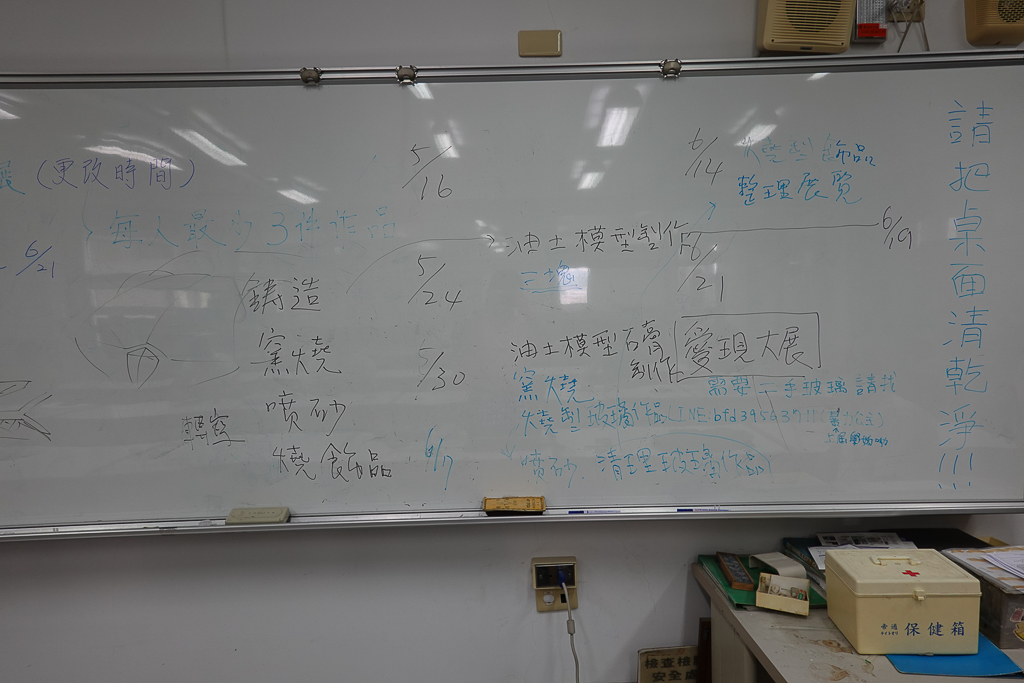 展(更改時間)
每人最少3件作品
6/21
鑄造
窯燒
噴砂
燒飾品
5/16
5/24
5/30
6/7
油土模型製作
三塊
油土模型石膏
製作
窯燒
燒製玻璃作品
噴砂 清理玻璃作品
6/14
整理展覽
6/19
6/21
愛現大展
需要二手玻璃請找
請把桌面清乾淨!!!
保健箱
檢查檢
安全處